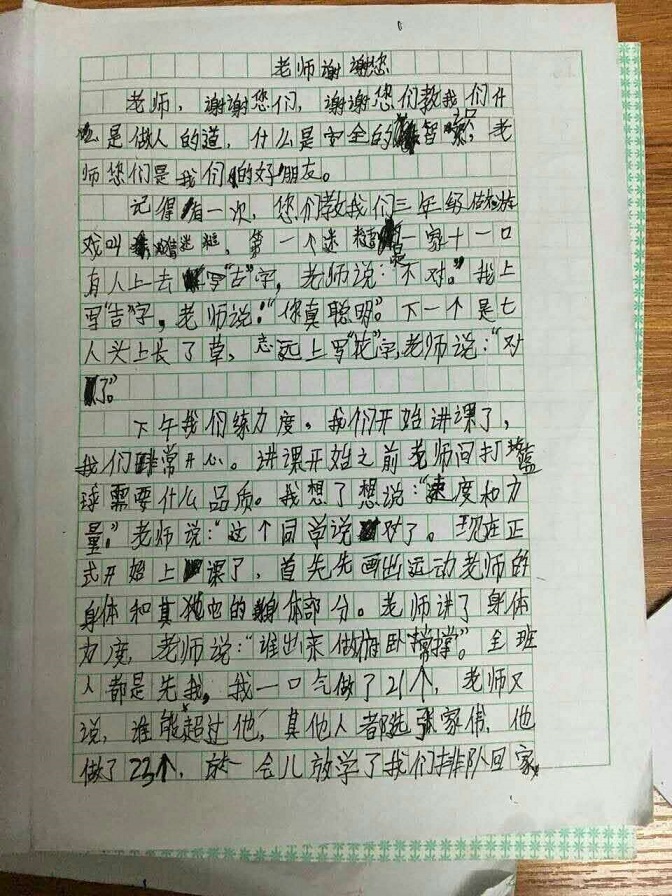 老师谢谢您
老师，谢谢您们，谢谢您们教我们什
么是做人的道，什么是安全的智家，老
师您们是我们的好朋友。
记得有一次，您们教我们三年级做游
戏叫猜谜，第一个迷是一家十一口
有人上去写“古”字，老师说：“不对。”我上
写“吉”字，老师说：“你真聪明。”下一个是七
人头上长了草，志远上写“花”字老师说：“对
了。”
下午我们练力度。我们开始讲课了，
我们非常开心。讲课开始之前老师问打篮
球需要什么品质。我想了想说：“速度和力
量。”老师说：“这个同学说对了。现在正
式开始上课了，首先先画出运动老师的
身体和其他的身体部分。老师讲了身体
力度，老师说：“谁出来做俯卧撑”。全班
人都是先我，我一口气做了21个，老师又
说，谁能超过他，真他人都选张家倩，他
做了23个，放一会儿放学了我们排队回家。